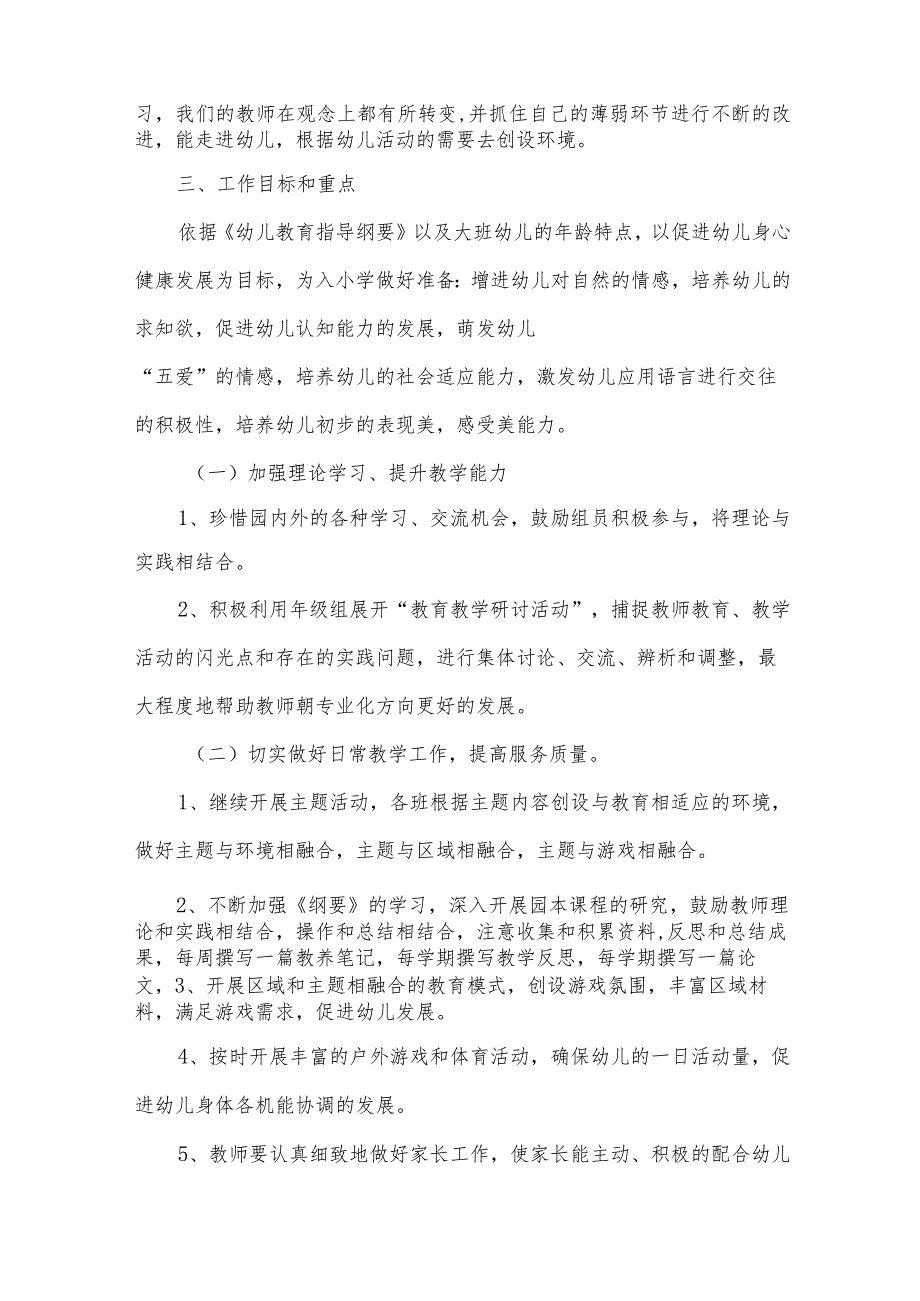 习，我们的教师在观念上都有所转变,并抓住自己的薄弱环节进行不断的改
进，能走进幼儿，根据幼儿活动的需要去创设环境。
三、工作目标和重点
依据《幼儿教育指导纲要》以及大班幼儿的年龄特点，以促进幼儿身心
健康发展为目标，为入小学做好准备：增进幼儿对自然的情感，培养幼儿的
求知欲，促进幼儿认知能力的发展，萌发幼儿
“五爱”的情感，培养幼儿的社会适应能力，激发幼儿应用语言进行交往
的积极性，培养幼儿初步的表现美，感受美能力。
（一）加强理论学习、提升教学能力
1、珍惜园内外的各种学习、交流机会，鼓励组员积极参与，将理论与
实践相结合。
2、积极利用年级组展开“教育教学研讨活动”，捕捉教师教育、教学
活动的闪光点和存在的实践问题，进行集体讨论、交流、辨析和调整，最
大程度地帮助教师朝专业化方向更好的发展。
（二）切实做好日常教学工作，提高服务质量。
1、继续开展主题活动，各班根据主题内容创设与教育相适应的环境，
做好主题与环境相融合，主题与区域相融合，主题与游戏相融合。
2、不断加强《纲要》的学习，深入开展园本课程的研究，鼓励教师理
论和实践相结合，操作和总结相结合，注意收集和积累资料,反思和总结成
果，每周撰写一篇教养笔记，每学期撰写教学反思，每学期撰写一篇论
文，3、开展区域和主题相融合的教育模式，创设游戏氛围，丰富区域材
料，满足游戏需求，促进幼儿发展。
4、按时开展丰富的户外游戏和体育活动，确保幼儿的一日活动量，促
进幼儿身体各机能协调的发展。
5、教师要认真细致地做好家长工作，使家长能主动、积极的配合幼儿